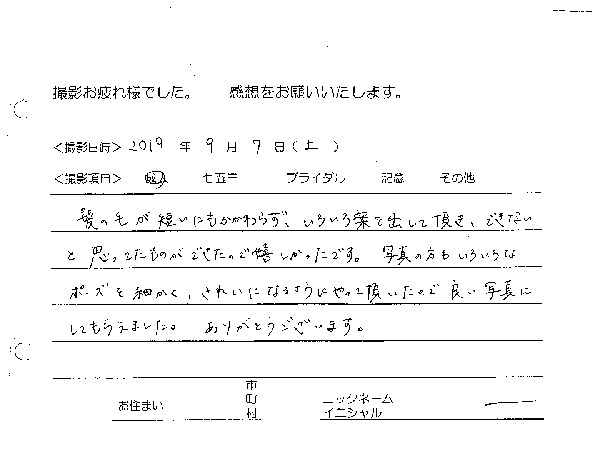 撮影お疲れ様でした。　感想をお願いいたします。
<撮影日時> 2019 年 9 月 7 日(土)
<撮影項目> 成人 七五三 ブライダル 記念 その他
髪の毛が短いにもかかわらず、いろいろ案を出して頂き、できない
と思ってたものができたので嬉しかったです。 写真の方もいろいろな
ポーズを細かく、きれいになるようにやって頂いたので良い写真に
してもらえました。 ありがとうございます。
お住まい 市町村 ニックネーム イニシャル